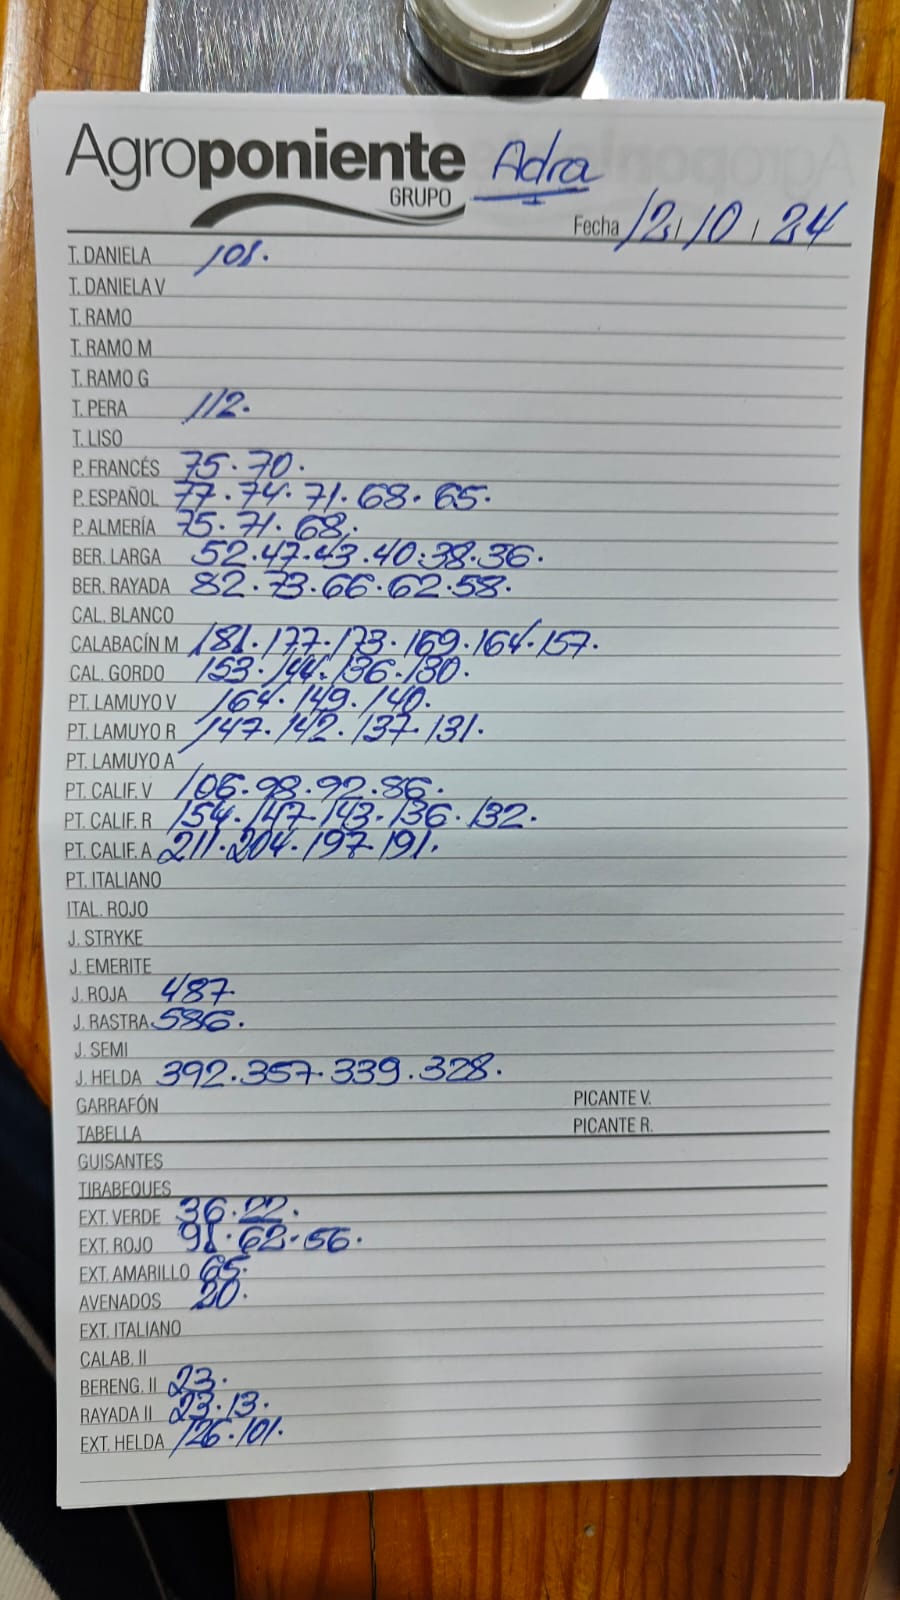 Agroponiente Adra
GRUPO
Fecha 12 / 10 / 24
T. DANIELA 101.
T. DANIELA V
T. RAMO
T. RAMO M
T. RAMO G
T. PERA 112.
T. LISO
P. FRANCÉS 75. 70.
P. ESPAÑOL 77. 74. 71. 68. 65.
P. ALMERÍA 75. 71. 68.
BER. LARGA 52. 47. 43. 40. 38. 36.
BER. RAYADA 82. 73. 66. 62. 58.
CAL. BLANCO
CALABACÍN M 181. 177. 173. 169. 164. 157.
CAL. GORDO 153. 144. 136. 130.
PT. LAMUYO V 164. 149. 140.
PT. LAMUYO R 147. 142. 137. 131.
PT. LAMUYO A
PT. CALIF. V 106. 98. 92. 86.
PT. CALIF. R 154. 147. 143. 136. 132.
PT. CALIF. A 211. 204. 197. 191.
PT. ITALIANO
ITAL. ROJO
J. STRYKE
J. EMERITE
J. ROJA 487.
J. RASTRA 586.
J. SEMI
J. HELDA 392. 357. 339. 328.
GARRAFÓN PICANTE V.
TABELLA PICANTE R.
GUISANTES
TIRABEQUES
EXT. VERDE 36. 22.
EXT. ROJO 91. 62. 56.
EXT. AMARILLO 65.
AVENADOS 20.
EXT. ITALIANO
CALAB. II
BERENG. II 23.
RAYADA II 23. 13.
EXT. HELDA 126. 101.